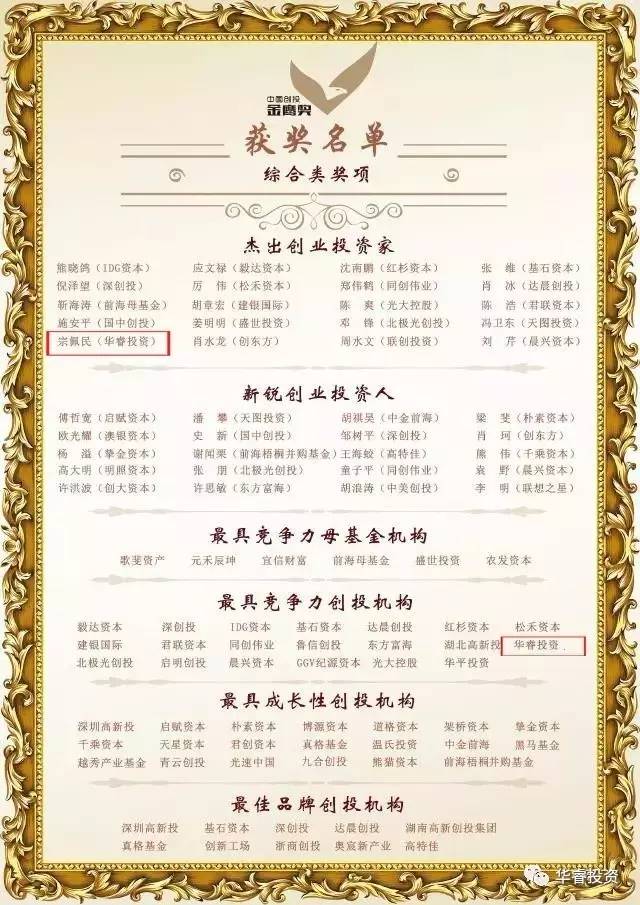 中国创投
金鹰奖
获奖名单
综合类奖项
杰出创业投资家
熊晓鸽（IDG资本） 应文禄（毅达资本） 沈南鹏（红杉资本） 张 维（基石资本）
倪泽望（深创投） 厉 伟（松禾资本） 郑伟鹤（同创伟业） 肖 冰（达晨创投）
靳海涛（前海母基金） 胡章宏（建银国际） 陈 爽（光大控股） 陈 浩（君联资本）
施安平（国中创投） 姜明明（盛世投资） 邓 锋（北极光创投） 冯卫东（天图投资）
宗佩民（华睿投资） 肖水龙（创东方） 周水文（联创投资） 刘 芹（晨兴资本）
新锐创业投资人
傅哲宽（启赋资本） 潘 攀（天图投资） 胡祺昊（中金前海） 梁 斐（朴素资本）
欧光耀（澳银资本） 史 新（国中创投） 邹树平（深创投） 肖 珂（创东方）
杨 溢（挚金资本） 谢闻栗（前海梧桐并购基金） 王海蛟（高特佳） 熊 伟（千乘资本）
高大明（明照资本） 张 朋（北极光创投） 童子平（同创伟业） 袁 野（晨兴资本）
许洪波（创大资本） 许思敏（东方富海） 胡浪涛（中美创投） 李 明（联想之星）
最具竞争力母基金机构
歌斐资产 元禾辰坤 宜信财富 前海母基金 盛世投资 农发资本
最具竞争力创投机构
毅达资本 深创投 IDG资本 基石资本 达晨创投 红杉资本 松禾资本
建银国际 君联资本 同创伟业 鲁信创投 东方富海 湖北高新投 华睿投资
北极光创投 启明创投 晨兴资本 GGV纪源资本 光大控股 华平投资
最具成长性创投机构
深圳高新投 启赋资本 朴素资本 博源资本 道格资本 架桥资本 挚金资本
千乘资本 天星资本 君创资本 真格基金 温氏投资 中金前海 黑马基金
越秀产业基金 青云创投 光速中国 九合创投 熊猫资本 前海梧桐并购基金
最佳品牌创投机构
深圳高新投 基石资本 深创投 达晨创投 湖南高新创投集团
真格基金 创新工场 浙商创投 奥宸新产业 高特佳
华睿投资